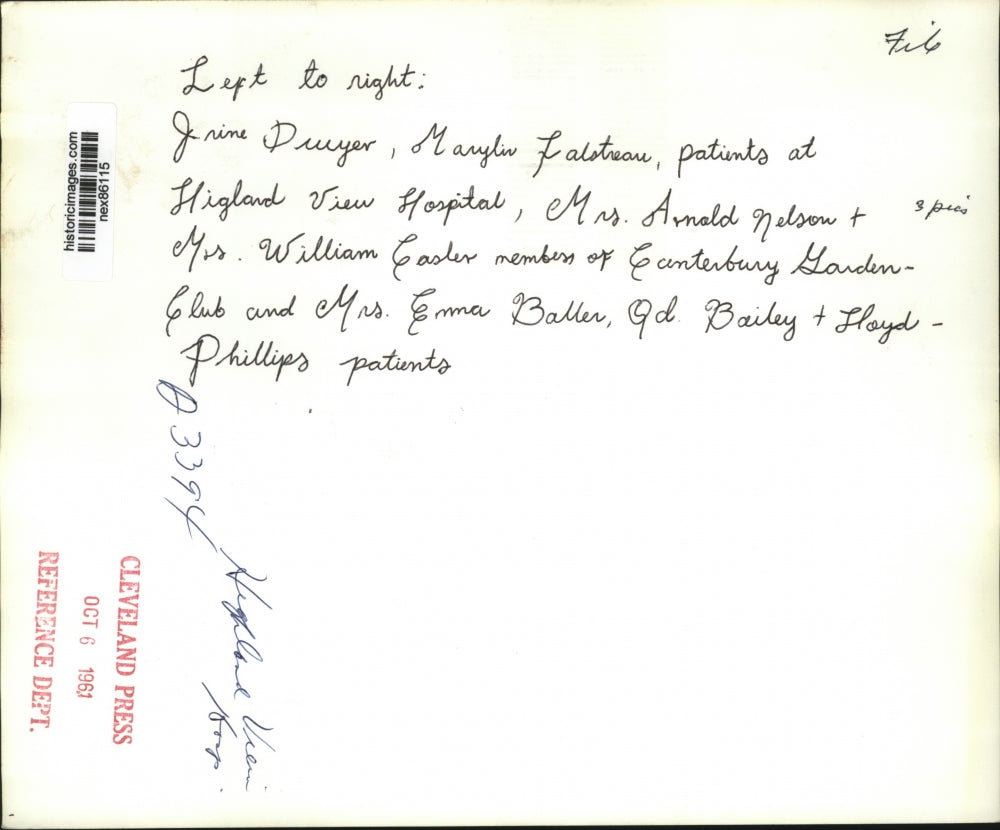 Left to right:
Irine Dwyer, Marylin Falstreau, patients at
Higland View Hospital, Mrs. Arnold Nelson +
Mrs. William Casler members of Canterbury Garden-
Club and Mrs. Emma Baller, Ed. Bailey + Floyd -
Phillips patients
3 pics
historicimages.com
nex86115
A 3394
Highland View
Hosp.
CLEVELAND PRESS
OCT 6 1961
REFERENCE DEPT.